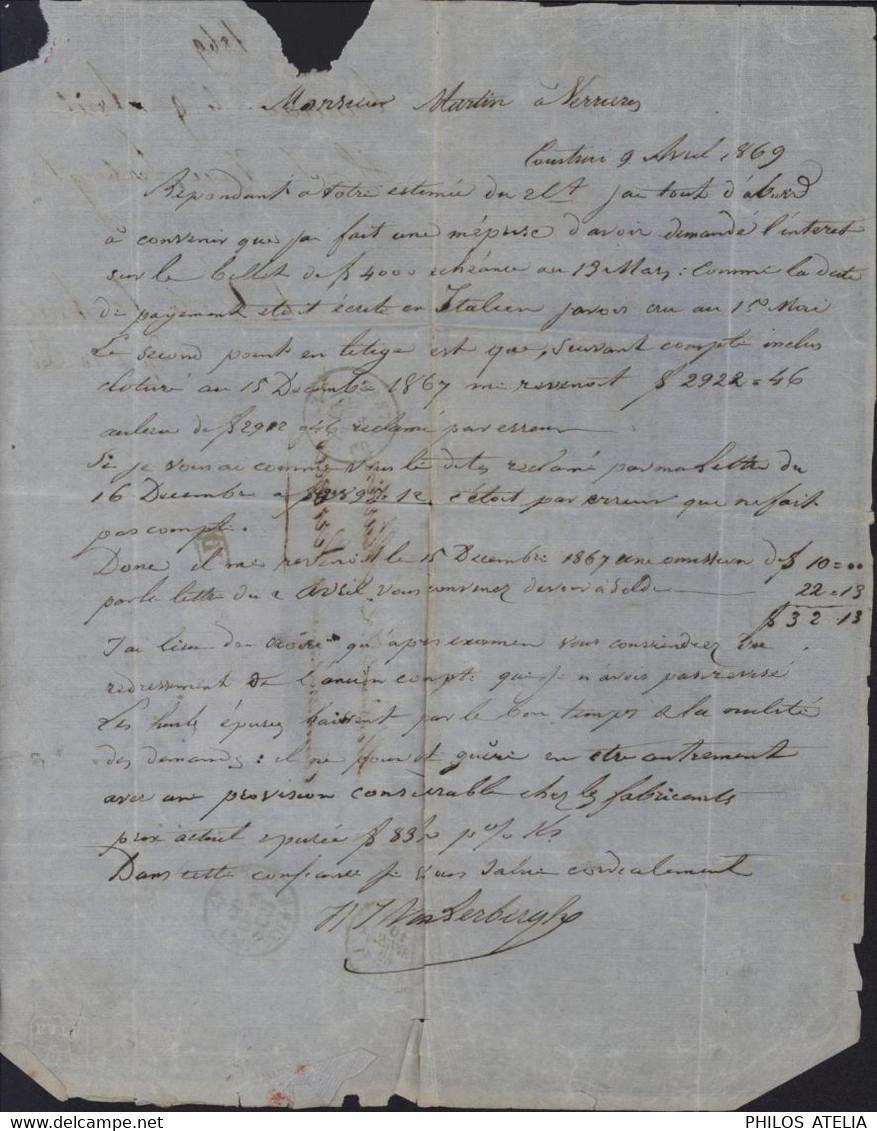 1869
Monsieur Martin à Verrieres
Courtrai 9 Avril 1869
Répondant à votre estimée du 2 Ct j'ai tout d'abord
à convenir que j'ai fait une méprise d'avoir demandé l'interet
sur le billet de f 4000 echéance au 13 Mars : Comme la date
de payement etoit écrite en Italien j'avois cru au 1er Mai
Le second point en litige est que, suivant compte inclus
cloturé au 15 Decembre 1867 me revenoit f 2922=46
au lieu de f 2912=46 reclamé par erreur
Si je vous ai comme vous le dites reclamé par ma lettre du
16 Decembre c'étoit par erreur que ne fait
pas compte.
Donc il me restoit le 15 Decembre 1867 une omission de f 10=00
par la lettre du 2 Avril vous convenez devoir à Solde 22=13
f 32.13
J'ai lieu de croire qu'apres examen vous conviendrez du
redressement de l'ancien compte que je n'avois pas revisé
Les huiles épurees baissent par le bon temps & la nullité
des demandes : il ne pouvoit guère en etre autrement
avec une provision considerable chez les fabricants
prix actuel epurée f 83½ p % Ks
Dans cette confiance je vous salue cordialement
Vanderberghe
www.delcampe.net
PHILOS ATELIA